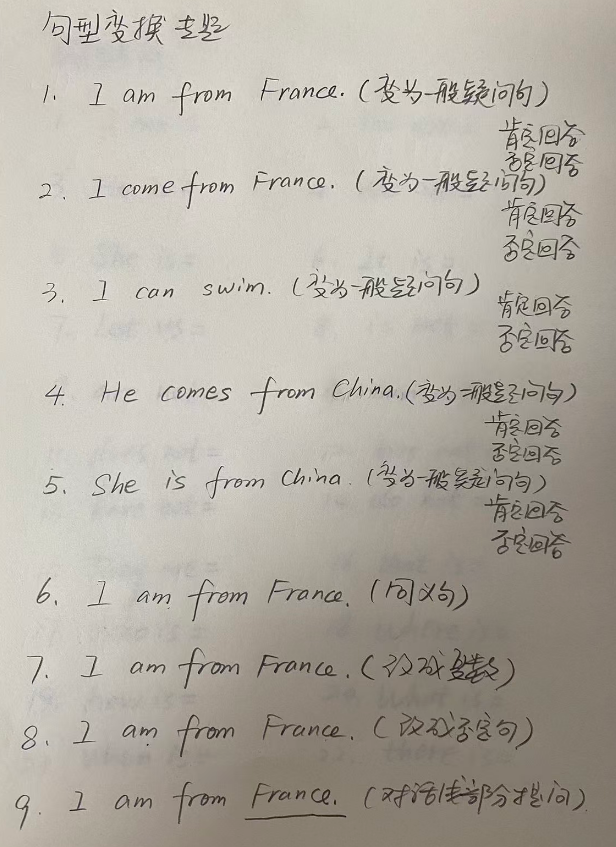 句型变换专题
1. I am from France. (变为一般疑问句)
肯定回答
否定回答
2. I come from France. (变为一般疑问句)
肯定回答
否定回答
3. I can swim. (变为一般疑问句)
肯定回答
否定回答
4. He comes from China. (变为一般疑问句)
肯定回答
否定回答
5. She is from China. (变为一般疑问句)
肯定回答
否定回答
6. I am from France. (同义句)
7. I am from France. (改成复数)
8. I am from France. (改成否定句)
9. I am from France. (对话线部分提问)